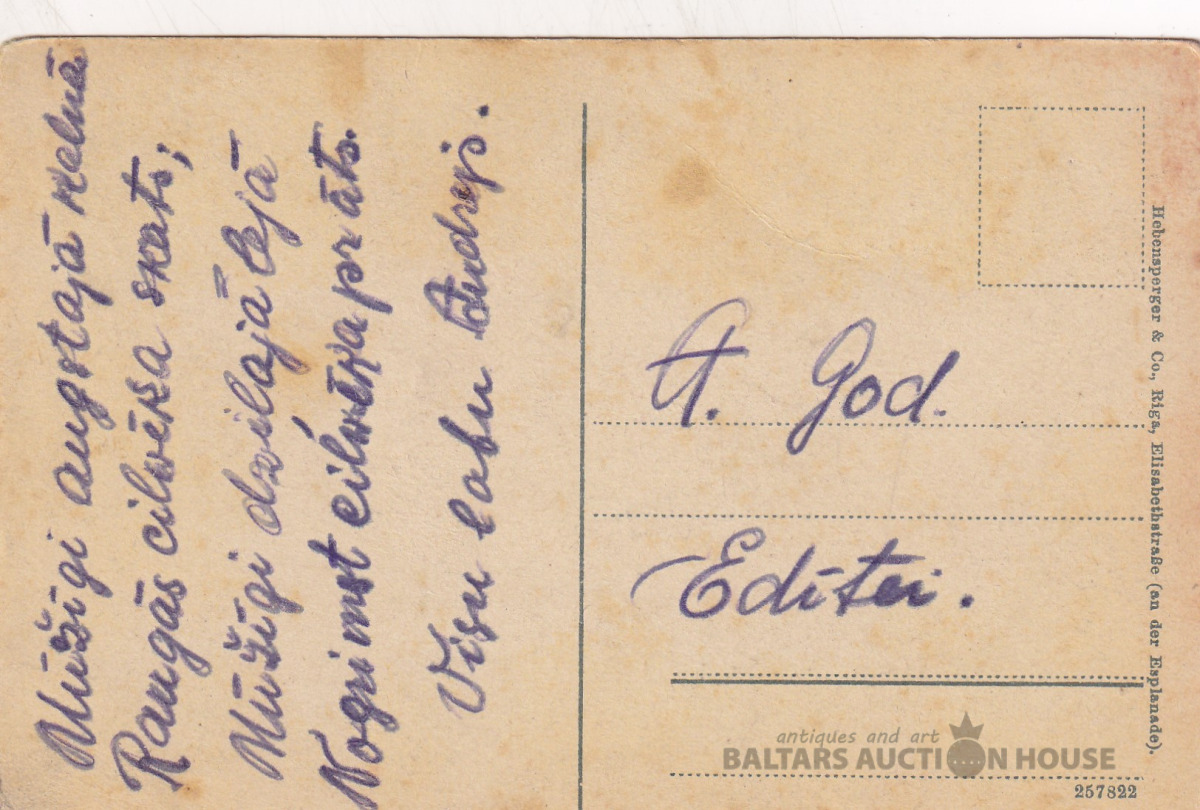 Mūžīgi augstajā kalnā
Raugās cilvēka skats;
Mūžīgi dziļajā lejā
Nogrimst cilvēka prāts.
Visu labu Andrejs.
A. God.
Editei.
Hebensperger & Co., Riga, Elisabethstraße (an der Esplanade).
antiques and art
BALTARS AUCTION HOUSE
257822